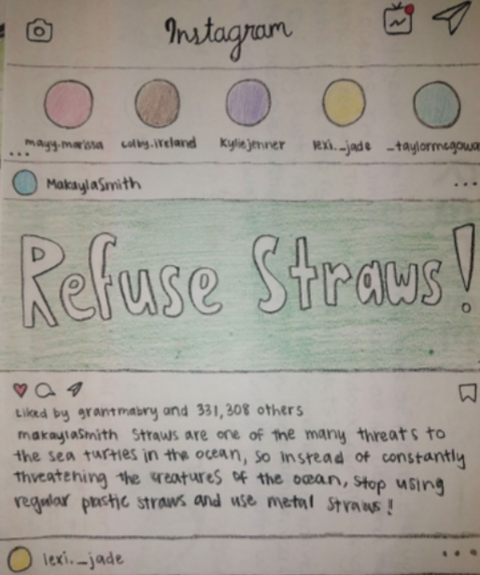 Instagram
mayy.marissa colby.ireland Kyliejenner lexi._jade _taylormcgowa
MakaylaSmith
Refuse Straws!
Liked by grantmabry and 331,308 others
makaylaSmith Straws are one of the many threats to
the sea turtles in the ocean, so instead of constantly
threatening the creatures of the ocean, stop using
regular plastic straws and use metal straws!
lexi._jade